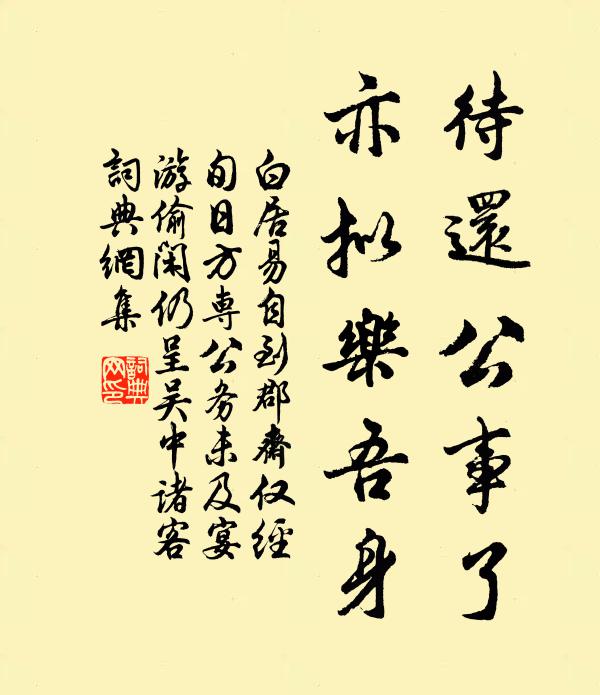 待還公事了
亦拟樂吾身
白居易自到郡齋仅經
旬日方専公务未及宴
游偷閑仍呈吴中诸客
詞典網集
詞典
网印